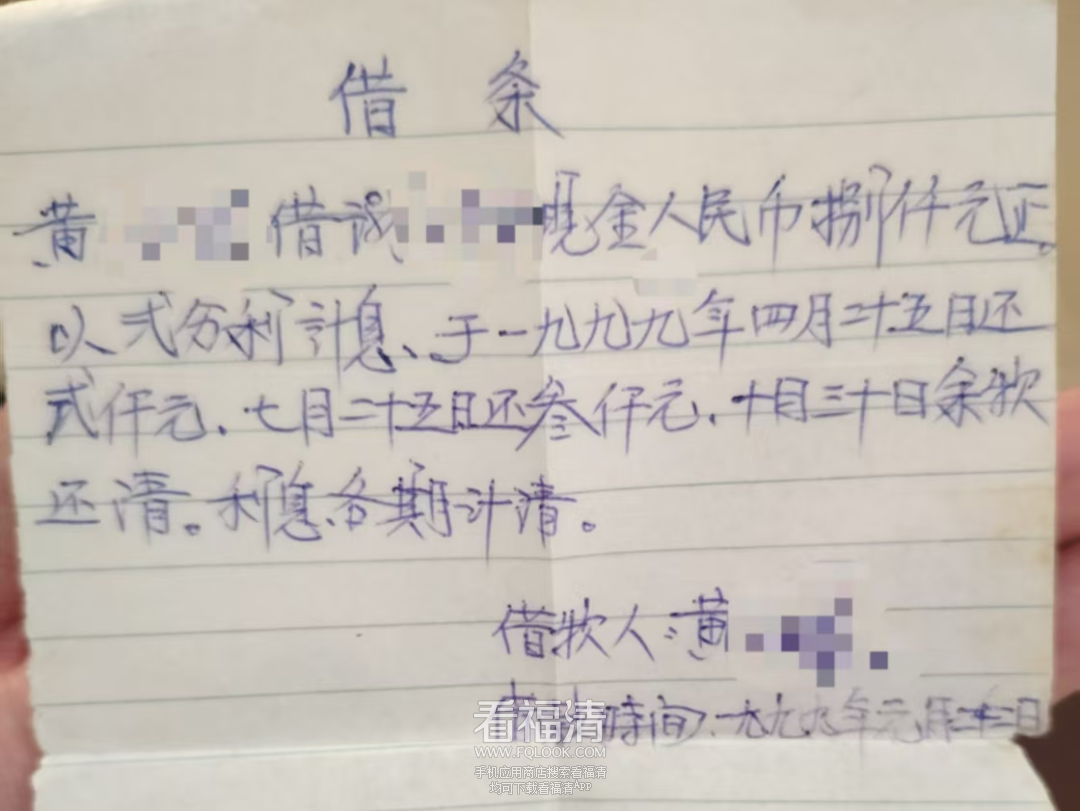 借条
黄 借诚 现金人民币捌仟元正。
以弍分利计息、于一九九九年四月二十五日还
弍仟元、七月二十五日还叁仟元、十月三十日余款
还清。利息各期计清。
借款人:黄
時间、一九九九年元月二十二日
看福清
WWW.FQLOOK.COM
手机应用商店搜索看福清
均可下载看福清App